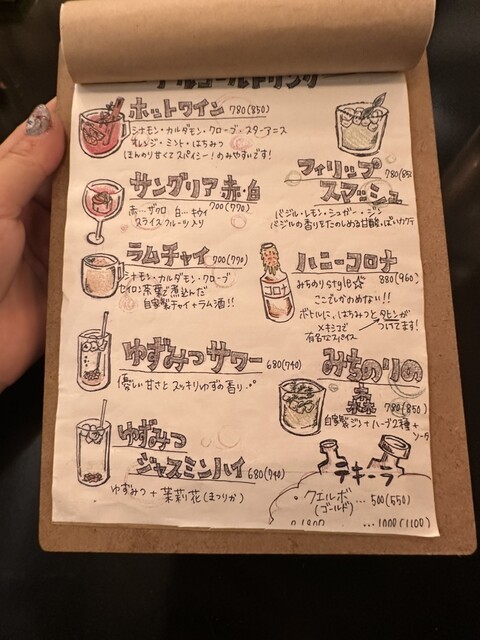 アルコールドリンク
ホットワイン 780(850)
シナモン・カルダモン・クローブ・スターアニス
オレンジ・ミント・はちみつ
ほんのり甘くてスパイシー!のみやすいです!
サングリア 赤・白
700(770)
赤…ザクロ 白…キウイ
スライスフルーツ入り
ラムチャイ 700(770)
シナモン・カルダモン・クローブ
セイロン茶葉で煮込んだ
自家製チャイ+ラム酒!!
ゆずみつサワー 680(740)
優しい甘さとスッキリゆずの香り
ゆずみつ
ジャスミンハイ 680(740)
ゆずみつ + 茉莉花(まつりか)
フィリップ
スマッシュ 780(85
バジル・レモン・シュガー・ジン
バジルの香りをたのしめる甘酸っぱいカクテ
ハニーコロナ
みちのりstyle☆ 880(960)
ここでしかのめない!!
ボトルに、はちみつとタヒンが
ついてます!
メキシコで
有名なスパイス
コロナ
みちのりの
森 780(850)
自家製ジン+ハーブ2種+
ソーダ
テキーラ
・クエルボ … 500(550)
(ゴールド)
1800 … 1000(1100)